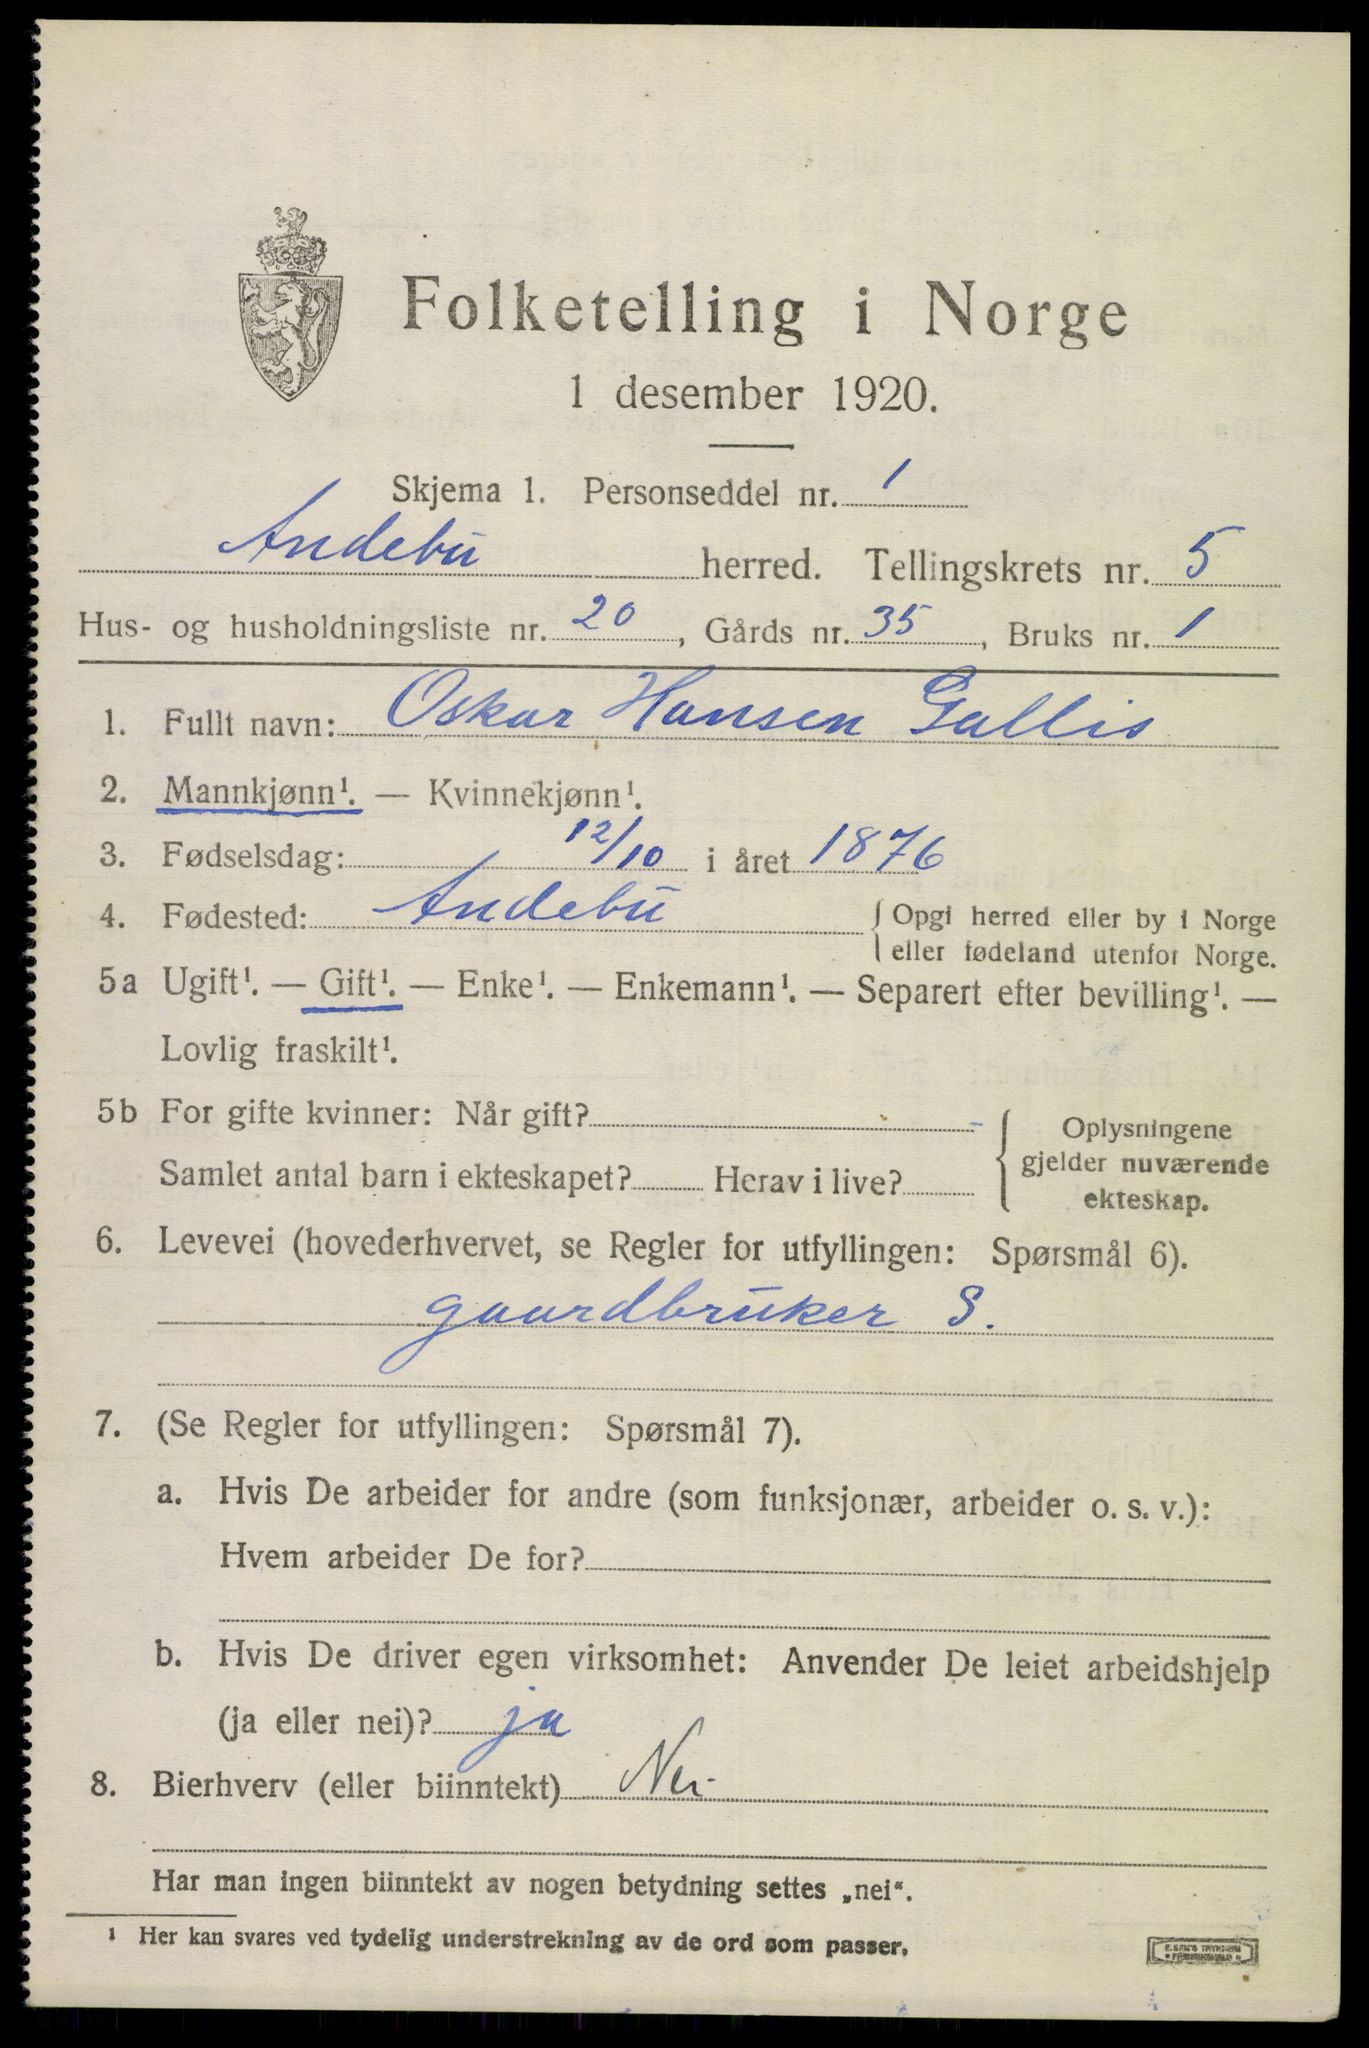 Folketelling i Norge
1 desember 1920.
Skjema 1. Personseddel nr. 1
Andebu herred. Tellingskrets nr. 5
Hus- og husholdningsliste nr. 20, Gårds nr. 35, Bruks nr. 1
1. Fullt navn: Oskar Hansen Gallis
2. Mannkjønn¹. — Kvinnekjønn¹.
3. Fødselsdag: 12/10 i året 1876
4. Fødested: Andebu { Opgi herred eller by i Norge
eller fødeland utenfor Norge.
5a Ugift¹. — Gift¹. — Enke¹. — Enkemann¹. — Separert efter bevilling¹. —
Lovlig fraskilt¹.
5b For gifte kvinner: Når gift? -
Samlet antal barn i ekteskapet? Herav i live?
{ Oplysningene
gjelder nuværende
ekteskap.
6. Levevei (hovederhvervet, se Regler for utfyllingen: Spørsmål 6).
gaardbruker S.
7. (Se Regler for utfyllingen: Spørsmål 7).
a. Hvis De arbeider for andre (som funksjonær, arbeider o. s. v.):
Hvem arbeider De for?
b. Hvis De driver egen virksomhet: Anvender De leiet arbeidshjelp
(ja eller nei)? ja
8. Bierhverv (eller biinntekt) Nei
Har man ingen biinntekt av nogen betydning settes „nei".
¹ Her kan svares ved tydelig understrekning av de ord som passer.